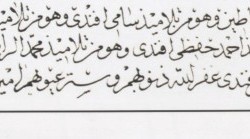 طين وهو من تلاميذ سامي افندى وهو من تلاميذ
احمد حفظي افندى وهو من تلاميذ محمد
غفر الله ذنوبهم وستر عيوبهم امين